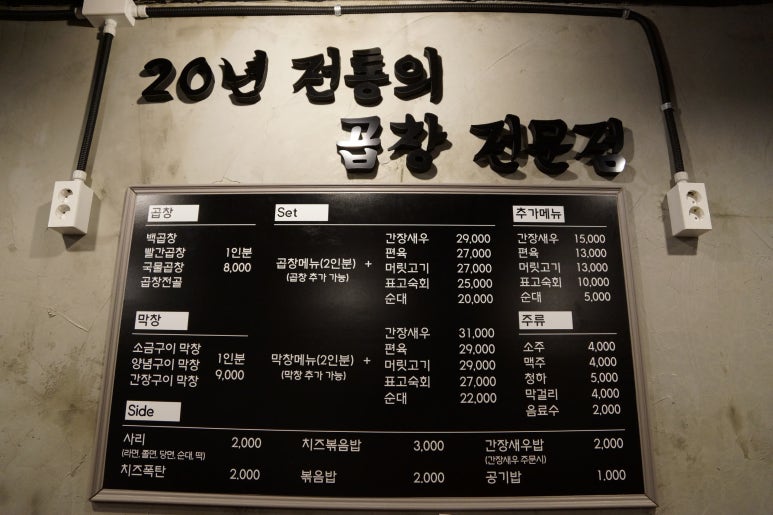 20년 전통의
곱창 전문점
곱창
백곱창
빨간곱창 1인분
국물곱창 8,000
곱창전골
막창
소금구이 막창
양념구이 막창 1인분
간장구이 막창 9,000
Set
곱창메뉴(2인분) +
(곱창 추가 가능)
간장새우 29,000
편육 27,000
머릿고기 27,000
표고숙회 25,000
순대 20,000
막창메뉴(2인분) +
(막창 추가 가능)
간장새우 31,000
편육 29,000
머릿고기 29,000
표고숙회 27,000
순대 22,000
추가메뉴
간장새우 15,000
편육 13,000
머릿고기 13,000
표고숙회 10,000
순대 5,000
주류
소주 4,000
맥주 4,000
청하 5,000
막걸리 4,000
음료수 2,000
Side
사리 2,000
(라면, 쫄면, 당면, 순대, 떡)
치즈폭탄 2,000
치즈볶음밥 3,000
볶음밥 2,000
간장새우밥 2,000
(간장새우 주문시)
공기밥 1,000